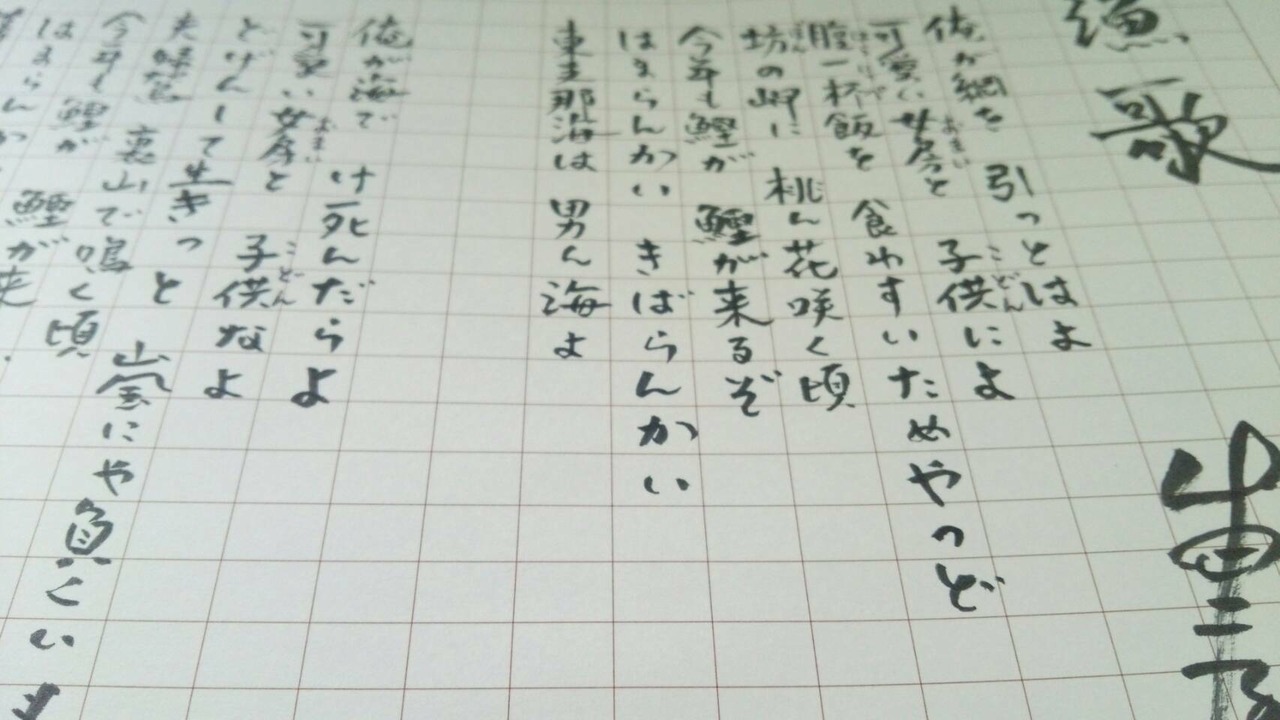 漁歌
俺が網を 引っとはよ
可愛い女房と 子供によ
腹一杯飯を 食わすいためやっど
坊の岬に 桃ん花咲く頃
今年も鰹が 鰹が来るぞ
はまらんかい きばらんかい
東支那海は 男ん海よ
俺が海で け死んだらよ
可愛い女房と 子供なよ
どげんして生きっと 嵐にゃ負くいま
夫婦鳶 裏山で鳴く頃
今年も鰹が 鰹が来
はまらんか